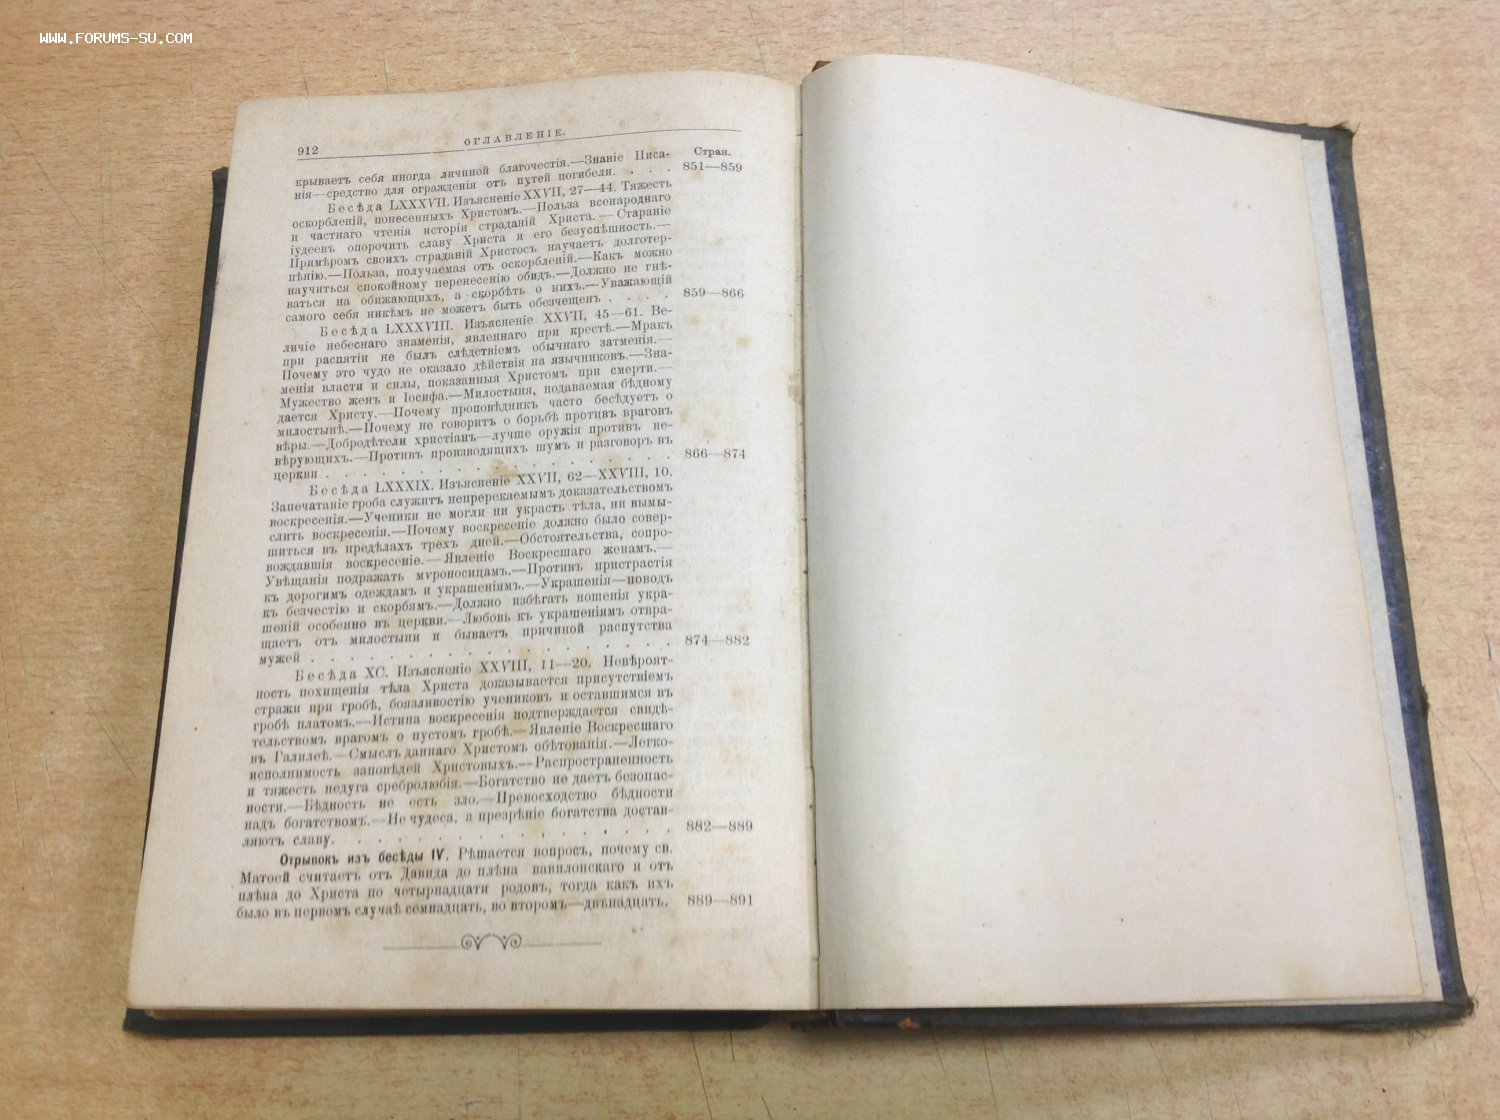 WWW.FORUMS-SU.COM
912
ОГЛАВЛЕНІЕ.
Стран.
крываетъ себя иногда личиной благочестія.—Знаніе Писа-
нія—средство для огражденія отъ путей погибели. . . . 851—859
Бесѣда LXXXVII. Изъясненіе XXVII, 27—44. Тяжесть
оскорбленій, понесенныхъ Христомъ.—Польза всенароднаго
и частнаго чтенія исторіи страданій Христа.—Стараніе
іудеевъ опорочить славу Христа и его безуспѣшность.—
Примѣромъ своихъ страданій Христосъ научаетъ долготер-
пѣнію.—Польза, получаемая отъ оскорбленій.—Какъ можно
научиться спокойному перенесенію обидъ.—Должно не гнѣ-
ваться на обижающихъ, а скорбѣть о нихъ.—Уважающій
самого себя никѣмъ не можетъ быть обезчещенъ . . . . 859—866
Бесѣда LXXXVIII. Изъясненіе XXVII, 45—61. Ве-
личіе небеснаго знаменія, явленнаго при крестѣ.—Мракъ
при распятіи не былъ слѣдствіемъ обычнаго затменія.—
Почему это чудо не оказало дѣйствія на язычниковъ.—Зна-
менія власти и силы, показанныя Христомъ при смерти.—
Мужество женъ и Іосифа.—Милостыня, подаваемая бѣдному
дается Христу.—Почему проповѣдникъ часто бесѣдуетъ о
милостынѣ.—Почему не говоритъ о борьбѣ противъ враговъ
вѣры.—Добродѣтели христіанъ—лучше оружія противъ не-
вѣрующихъ.—Противъ производящихъ шумъ и разговоръ въ
церкви . . . . . . . . . . . . . . . . . 866—874
Бесѣда LXXXIX. Изъясненіе XXVII, 62—XXVIII, 10.
Запечатаніе гроба служитъ непререкаемымъ доказательствомъ
воскресенія.—Ученики не могли ни украсть тѣла, ни вымы-
слить воскресенія.—Почему воскресеніе должно было совер-
шиться въ предѣлахъ трехъ дней.—Обстоятельства, сопро-
вождавшія воскресеніе.—Явленіе Воскресшаго женамъ.—
Увѣщанія подражать мѵроносицамъ.—Противъ пристрастія
къ дорогимъ одеждамъ и украшеніямъ.—Украшенія—поводъ
къ безчестію и скорбямъ.—Должно избѣгать ношенія укра-
шеній особенно въ церкви.—Любовь къ украшеніямъ отвра-
щаетъ отъ милостыни и бываетъ причиной распутства
мужей . . . . . . . . . . . . . . . . . 874—882
Бесѣда XC. Изъясненіе XXVIII, 11—20. Невѣроят-
ность похищенія тѣла Христа доказывается присутствіемъ
стражи при гробѣ, боязливостію учениковъ и оставшимся въ
гробѣ платомъ.—Истина воскресенія подтверждается свидѣ-
тельствомъ врагомъ о пустомъ гробѣ.—Явленіе Воскресшаго
въ Галилеѣ.—Смыслъ даннаго Христомъ обѣтованія.—Легко-
исполнимость заповѣдей Христовыхъ.—Распространенность
и тяжесть недуга сребролюбія.—Богатство не даетъ безопас-
ности.—Бѣдность не есть зло.—Превосходство бѣдности
надъ богатствомъ.—Не чудеса, а презрѣніе богатства достав-
ляютъ славу. . . . . . . . . . . . . . . . 882—889
Отрывокъ изъ бесѣды IV. Рѣшается вопросъ, почему св.
Матѳей считаетъ отъ Давида до плѣна вавилонскаго и отъ
плѣна до Христа по четырнадцати родовъ, тогда какъ ихъ
было въ первомъ случаѣ семнадцать, во второмъ—двѣнадцать. 889—891